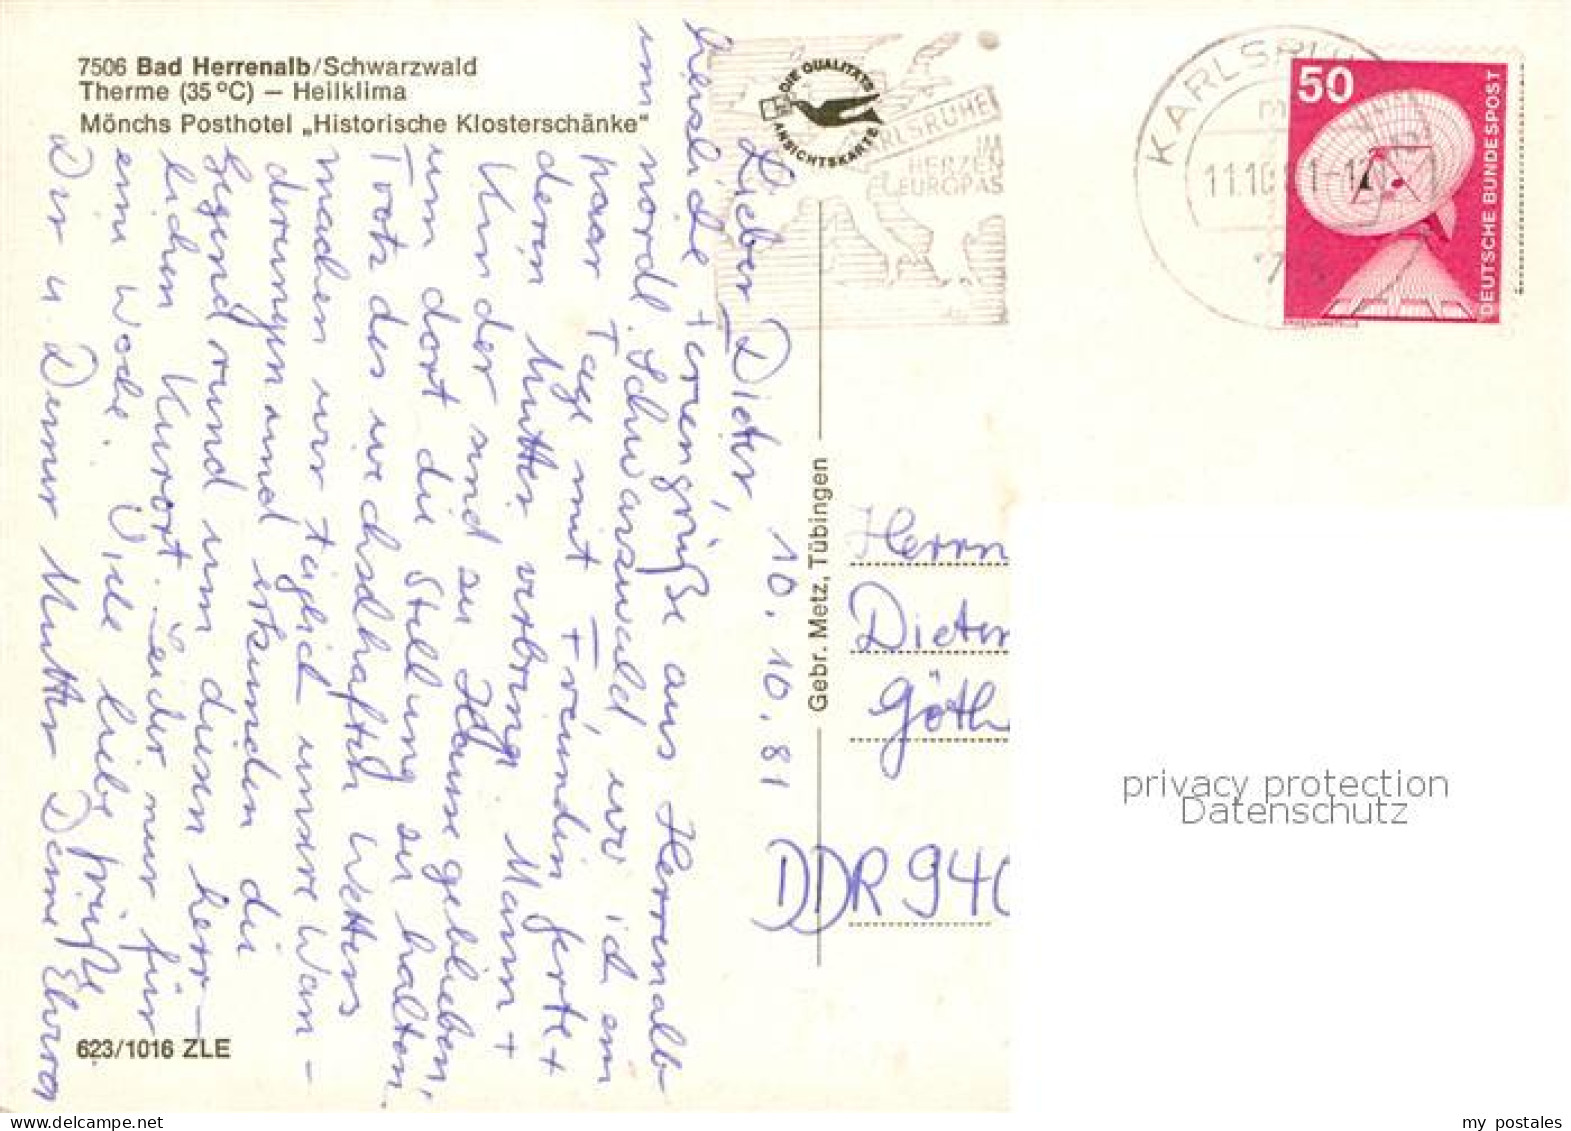 7506 Bad Herrenalb/Schwarzwald
Therme (35 °C) – Heilklima
Mönchs Posthotel „Historische Klosterschänke"
DIE QUALITÄTS
ANSICHTSKARTE
KARLSRUHE
IM
HERZEN
EUROPAS
KARLSRUHE
11.10.81-12
50
DEUTSCHE BUNDESPOST
10.10.81
Lieber Dieter,
herzliche Feriengrüße aus Herrenalb
im nördl. Schwarzwald, wo ich ein
paar Tage mit Freundin Gerte +
deren Mutter verbringe. Mann +
Kinder sind zu Hause geblieben,
um dort die Stellung zu halten.
Trotz des wechselhaften Wetters
machen wir täglich unsere Wan-
derungen und erkunden die
Gegend rund um diesen herr-
lichen Kurort. Leider nur für
eine Woche. Viele liebe Grüße
Dir u. Deiner Mutter Deine Elvira
Gebr. Metz, Tübingen
Herrn
Dieter
Göth
DDR 940
623/1016 ZLE
privacy protection
Datenschutz
my postales